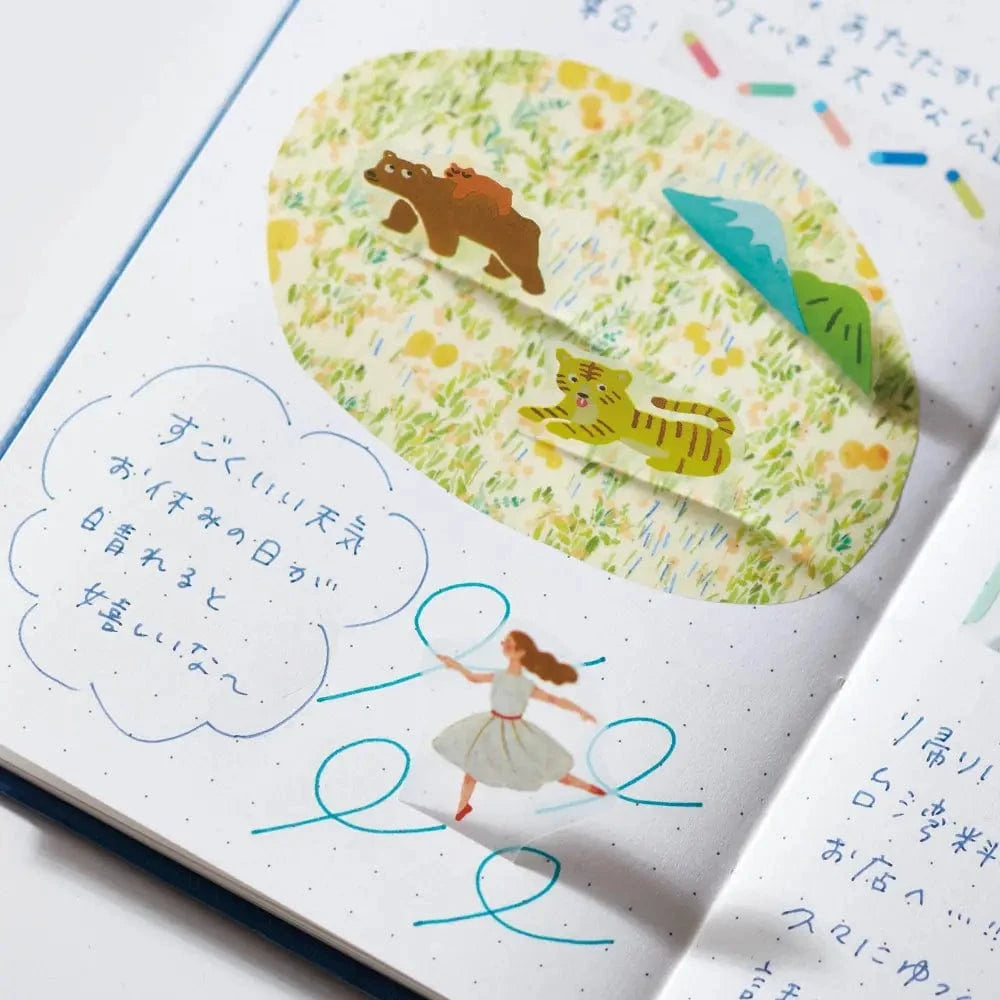 あたたかく
できる大きな公
集合！
すごくいい天気
お休みの日が
日晴れると
嬉しいな〜
り帰りし
台湾料
お店へ…!!
久々にゆっ